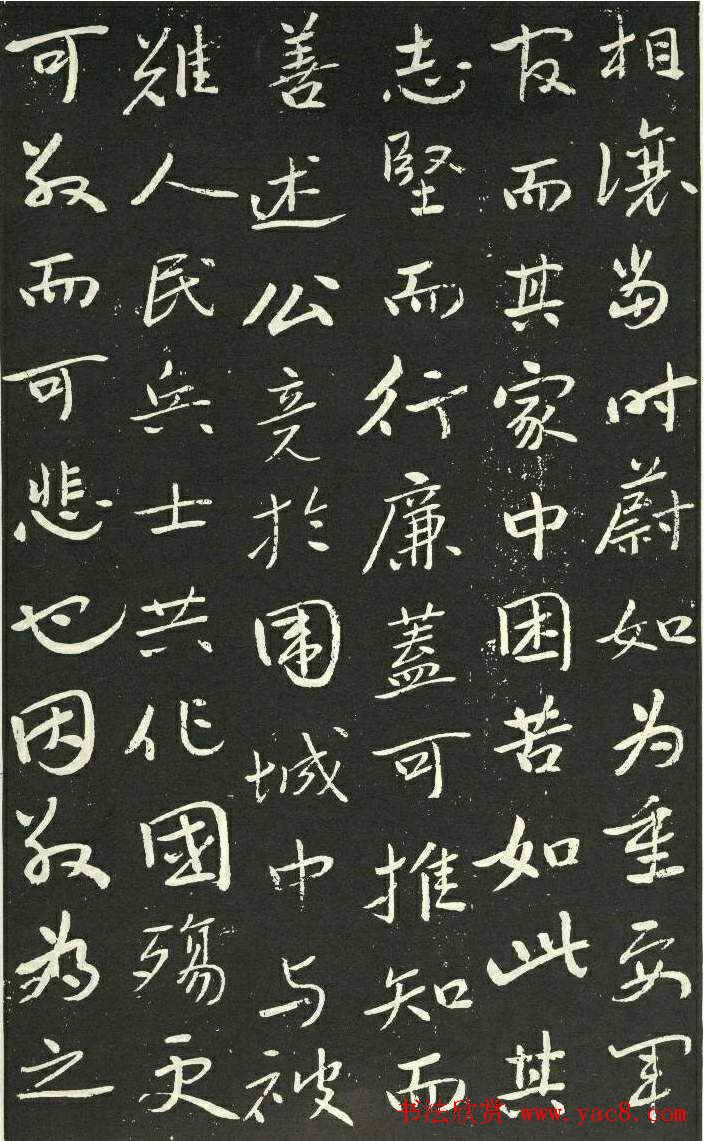 相讓當时蔚如为重要军
官而其家中困苦如此其
志堅而行廉蓋可推知而
善述公竟於围城中与被
難人民兵士共作國殤更
可敬而可悲也因敬為之
书法欣赏 www.yac8.com